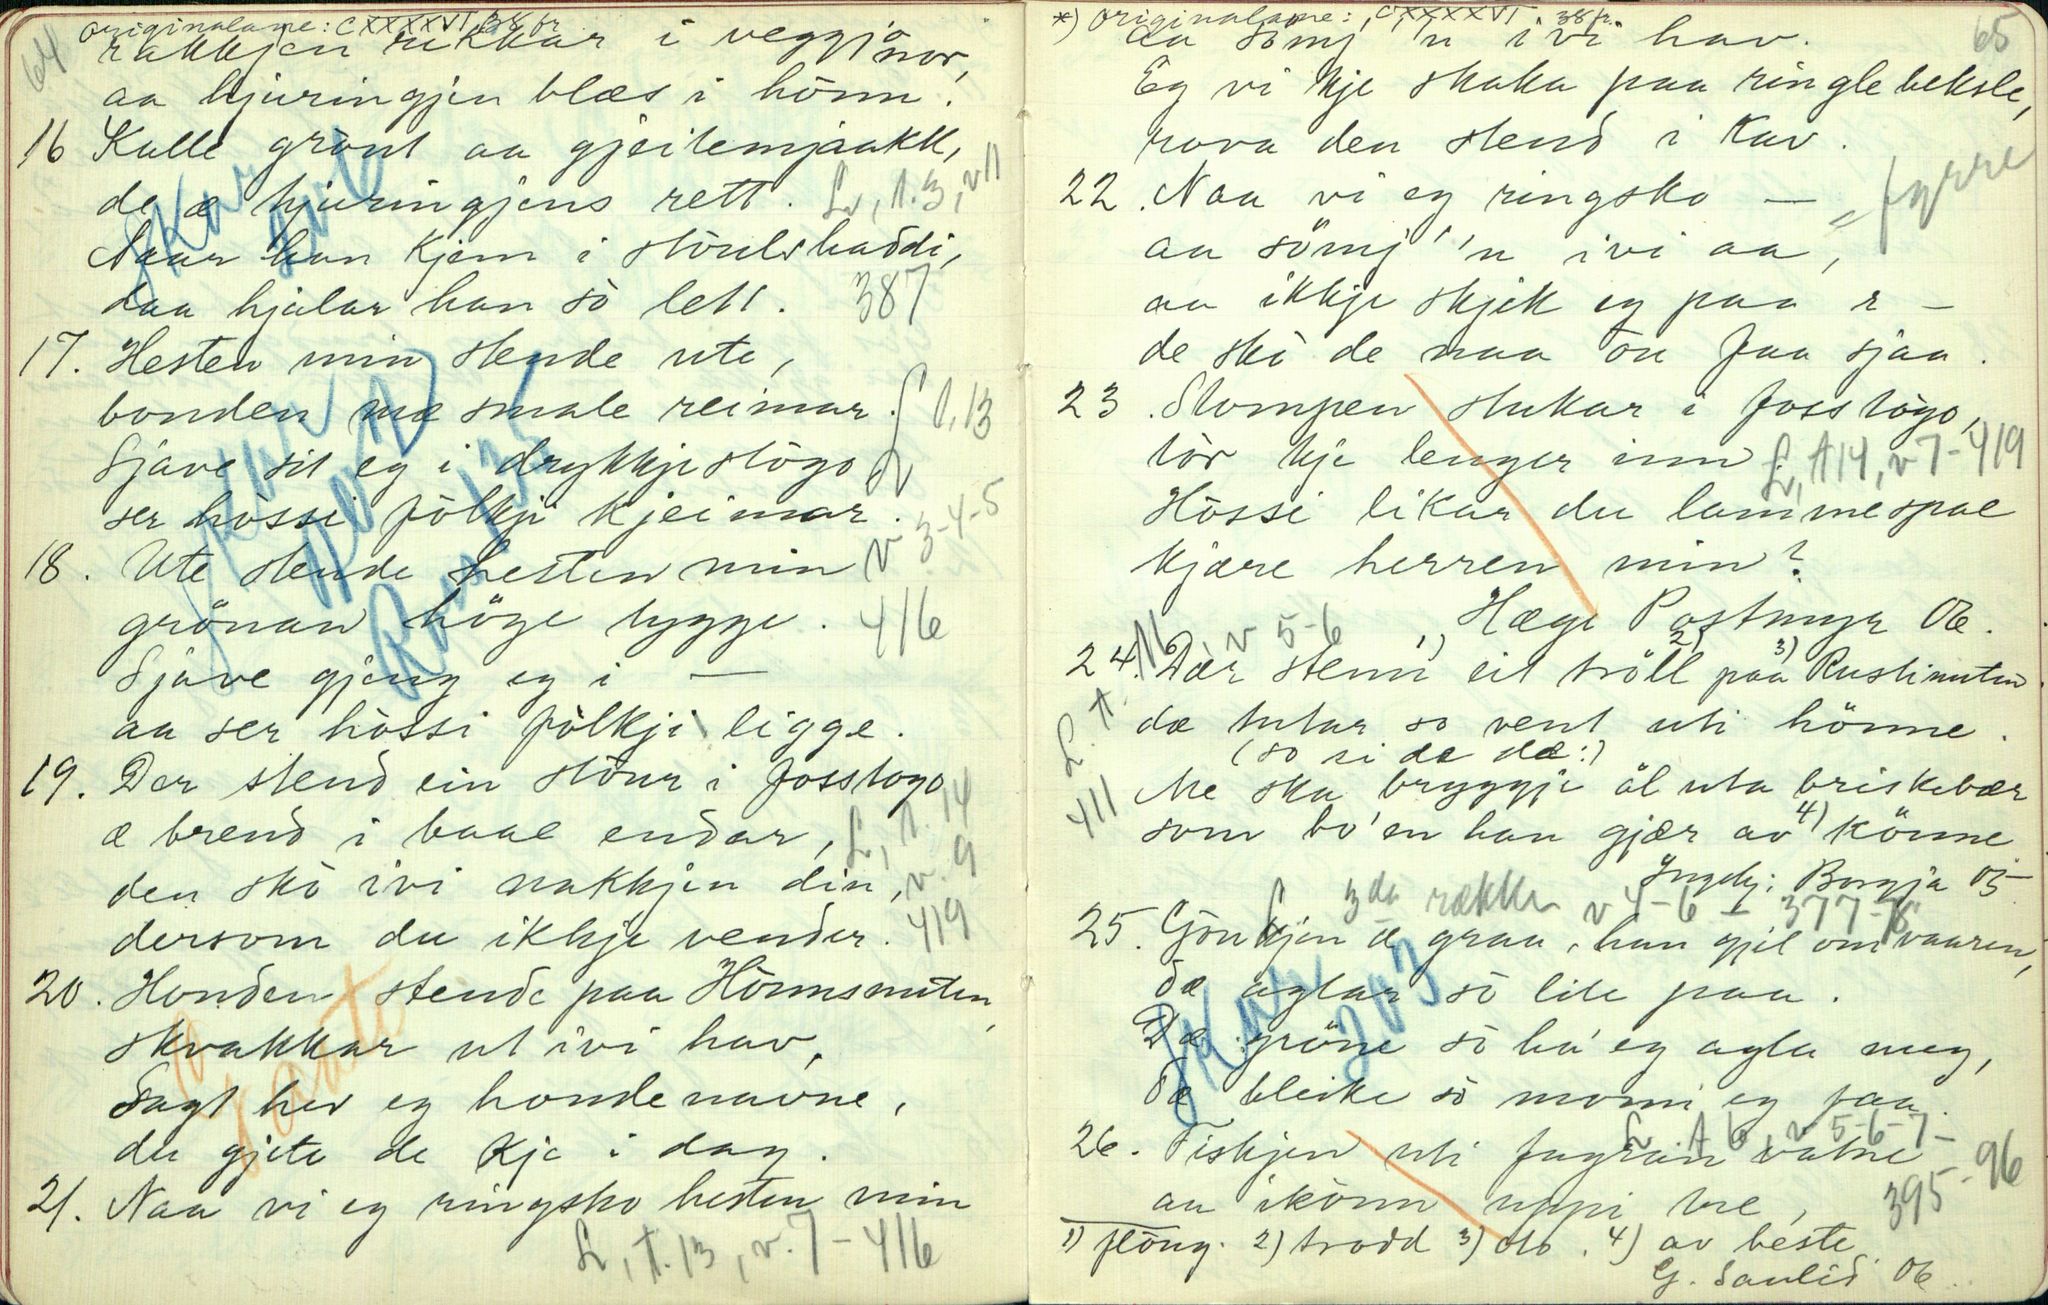 64
originalane: CXXXXVI, 38 fr.
rakkjen rikkar i veggjanov,
aa hjuringjen blæs i hönn.
16 Kalle grönt aa gjeitemjaakk,
de æ hjuringjens rett. L., t. 3, v 11
Naar han kjem i
daa hjalar han so lett. 387
17. Hesten min stende ute,
bonden mæ smale reimar. L t. 13
Sjave sit eg i drykkjestogo,
ser hossi folkji kjeimar. v 3-4-5
18. Ute stende hesten min
grönan höge tygge. 416
Sjave gjeng eg i —
aa ser hossi folkji ligge.
19. Der stend ein stour i fosstogo
æ brend i baae endar, L, t. 14
den sko ivi nakkjen din, v. 9
dersom du ikkje vender. 419
20. Honden stende paa Hönnsnuten,
skvakkar ut ivi hav,
Sagt hev eg hondenavne,
du gjete de kje i dag.
21. Naa vi eg ringsko hesten min
L, t. 13, v. 7 - 416
65
*) originalane: CXXXXVI 38 fr.
aa sömj 'n ivi hav.
Eg vi kje skaka paa ringlebeksle,
rova den stend i kav.
22. Naa vi eg ringsko —
aa sömj 'n ivi aa, = fyrre
aa ikkje skjek eg paa r —
de sko de naa ou faa sjaa.
23. Stompen stukar i fosstogo,
tor kje lenger inn. L, t 14, v 7 - 419
Hossi likar du lammespae
kjære herren min?
Hæge Postmyr 06.
L. t. 16 v 5-6
411
24. Dær stenn 1) eit tröll 2) paa 3) Rustinuten
dæ tutar so vent uti hönne.
(so si de dæ:)
Me ska bryggje öl uta briskebær
som bo'en han gjær av 4) könne
Ingebj. Borgja 05
L 3de rækkke v 4-6 - 377-78
25. Gönkjen æ graa, han gjel om vaaren,
dæ aglar so lite paa.
Dæ gröne so ha' eg agla meg,
dæ bleike so monni eg faa.
L. t 6, v 5-6-7-
26. Fiskjen uti fagran vatne
395-96
aa ikönn uppi tre,
1) flöug. 2) trodd 3) oto. 4) av beste
G. Saulid 06.